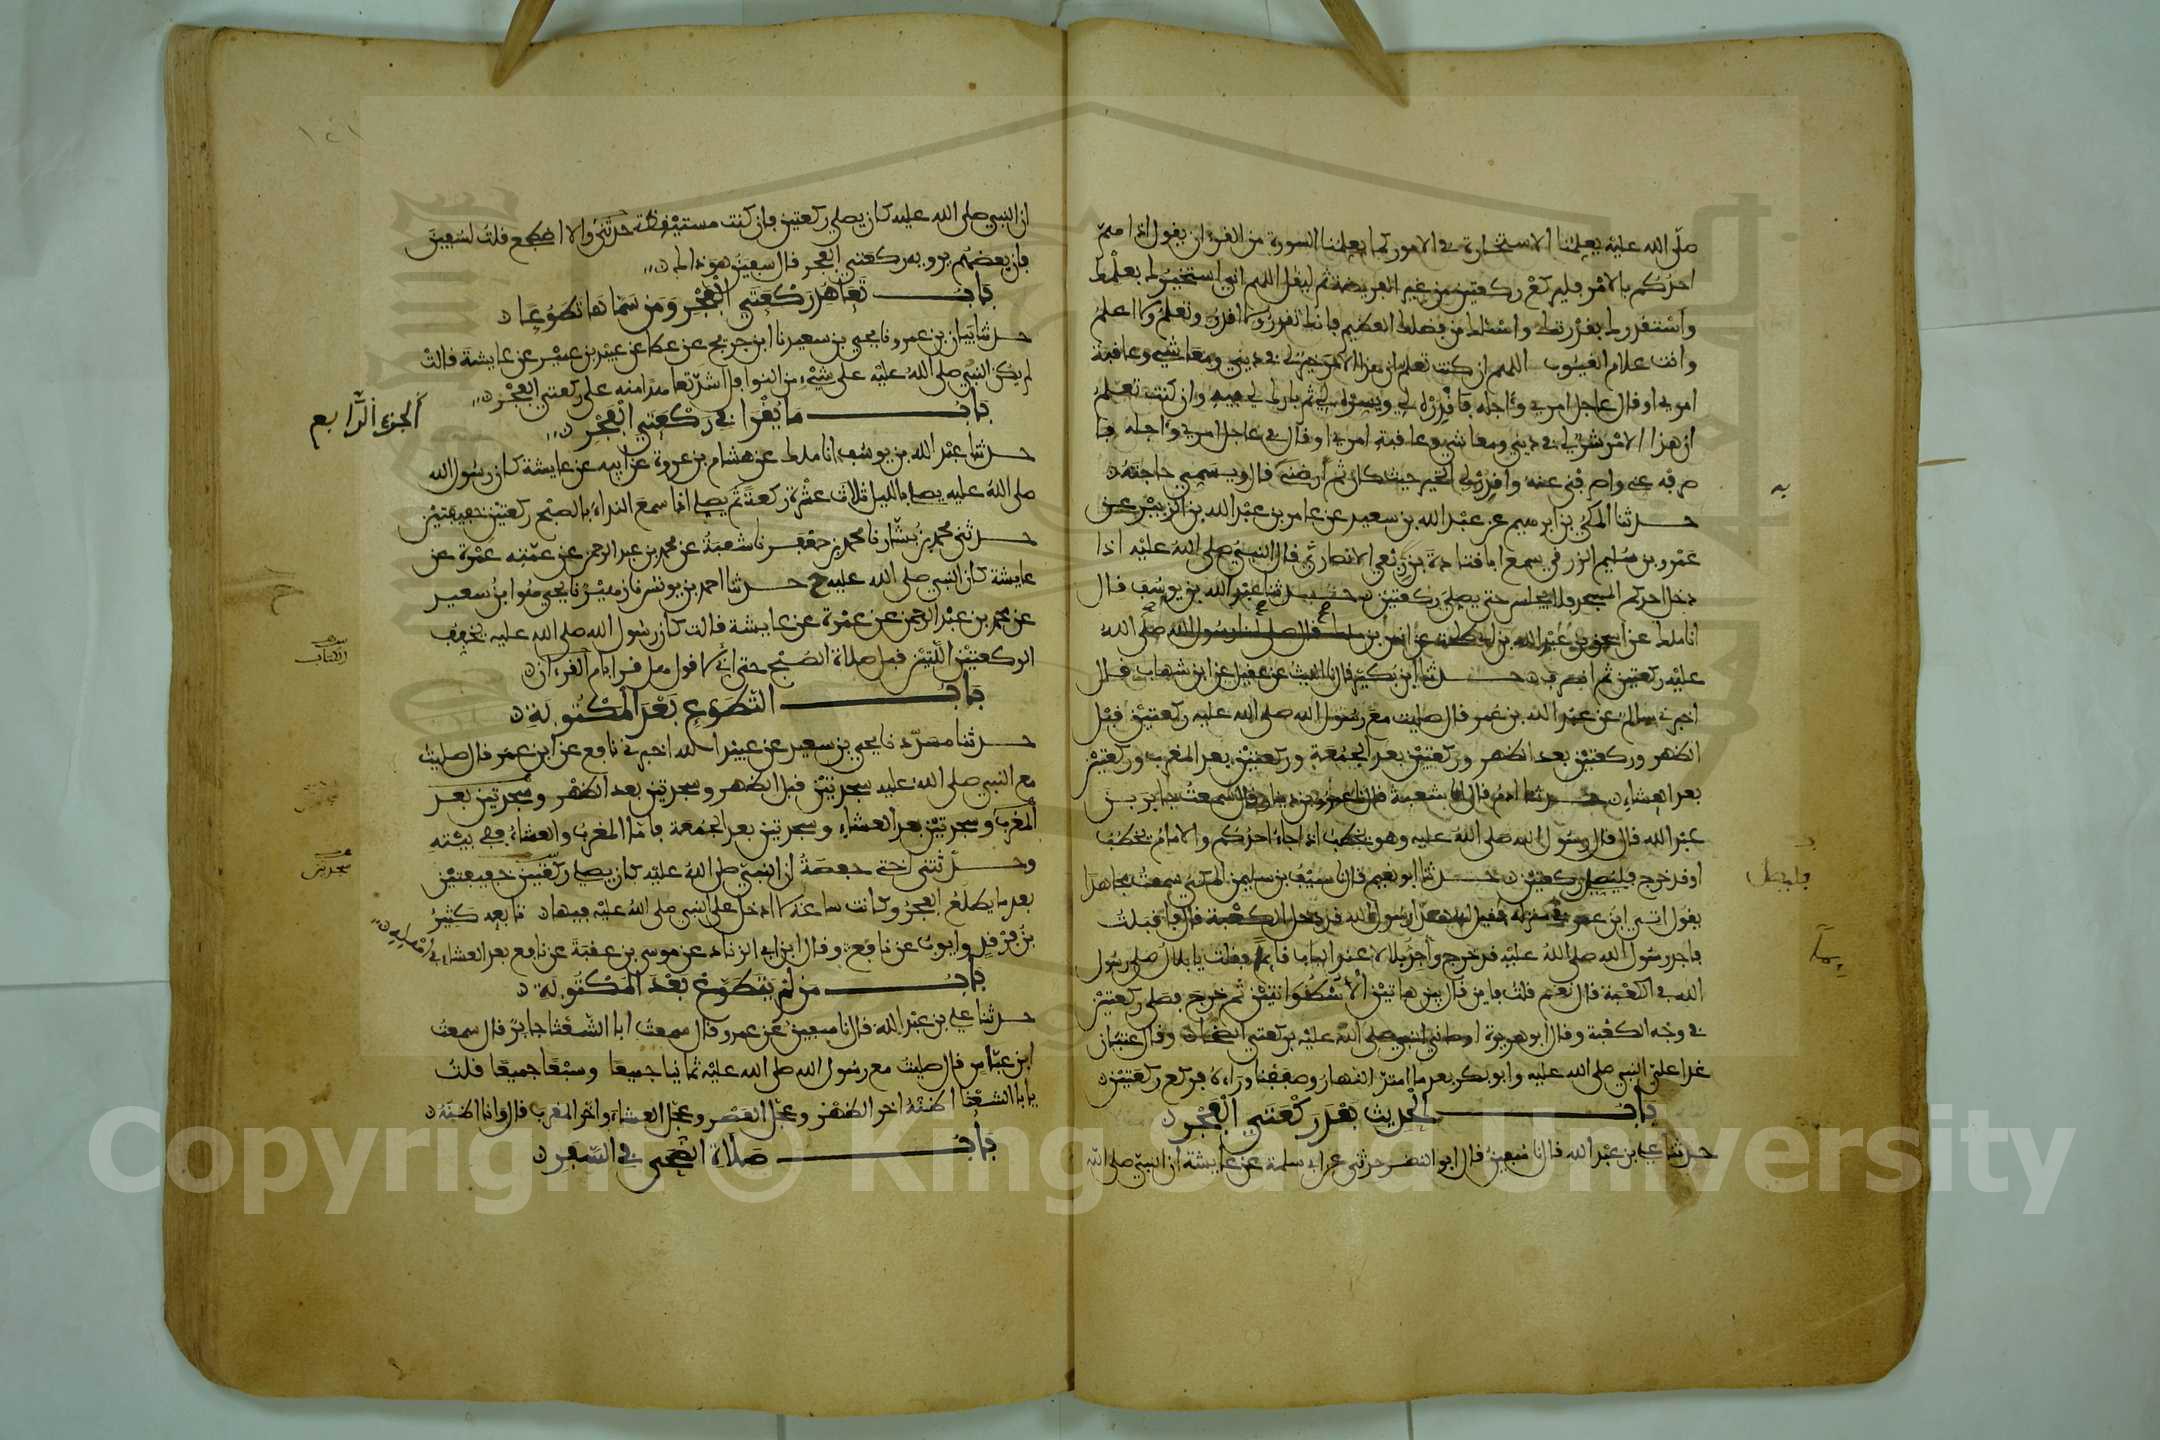 صلى الله عليه يعلمنا الاستخارة في الامور كما يعلمنا السورة من القرءان يقول اذا همّ
احدكم بالامر فليركع ركعتين من غير الفريضة ثم ليقل اللهم اني استخيرك بعلمك
واستقدرك بقدرتك واسئلك من فضلك العظيم فانك تقدر ولا اقدر وتعلم ولا اعلم
وانت علام الغيوب اللهم ان كنت تعلم ان هذا الامر خير لي في ديني ومعاشي وعاقبة
امري او قال عاجل امري وءاجله فاقدره لي ويسره لي ثم بارك لي فيه وان كنت تعلم
ان هذا الامر شر لي في ديني ومعاشي وعاقبة امري او قال في عاجل امري وءاجله فا
صرفه عني واصرفني عنه واقدر لي الخير حيث كان ثم ارضني قال ويسمي حاجته
حدثنا المكي بن ابرهيم عن عبد الله بن سعيد عن عامر بن عبد الله بن الزبير عن
عمرو بن سليم الزرقي سمع ابا قتادة بن ربعي الانصاري قال قال النبي صلى الله عليه اذا
دخل احدكم المسجد فلا يجلس حتى يصلي ركعتين حدثنا عبد الله بن يوسف قال
انا ملك عن اسحق بن عبد الله بن ابي طلحة عن انس بن ملك قال صلى لنا رسول الله صلى الله
عليه ركعتين ثم انصرف حدثنا ابن بكير قال نا الليث عن عقيل عن ابن شهاب قال
اخبرني سالم عن عبد الله بن عمر قال صليت مع رسول الله صلى الله عليه ركعتين قبل
الظهر وركعتين بعد الظهر وركعتين بعد الجمعة وركعتين بعد المغرب وركعتين
بعد العشاء حدثنا ادم قال نا شعبة قال نا عمرو بن دينار قال سمعت جابر بن
عبد الله قال قال رسول الله صلى الله عليه وهو يخطب اذا جاء احدكم والامام يخطب
او قد خرج فليصل ركعتين حدثنا ابو نعيم قال نا سيف بن سليمن المكي سمعت مجاهدا
يقول اتي ابن عمر في منزله فقيل له هذا رسول الله قد دخل الكعبة قال فاقبلت
فاجد رسول الله صلى الله عليه قد خرج واجد بلالا عند الباب قائما فقلت يا بلال صلى رسول
الله في الكعبة قال نعم قلت فاين قال بين هاتين الاسطوانتين ثم خرج فصلى ركعتين
في وجه الكعبة وقال ابو هريرة اوصاني النبي صلى الله عليه بركعتي الضحى وقال عتبان
غدا علي النبي صلى الله عليه وابو بكر بعد ما امتد النهار وصففنا وراءه فركع ركعتين
باب الحديث بعد ركعتي الفجر
حدثنا علي بن عبد الله قال نا سفين قال ابو النضر حدثني عن ابي سلمة عن عايشة ان النبي صلى الله
به
فليصل
ان النبي صلى الله عليه كان يصلي ركعتين فان كنت مستيقظة حدثني والا اضطجع قلت لسفين
فان بعضهم يرويه ركعتي الفجر قال سفين هو ذاك
باب تعاهد ركعتي الفجر ومن سماها تطوعا
حدثنا بيان بن عمرو نا يحيى بن سعيد نا ابن جريج عن عطاء عن عبيد بن عمير عن عايشة قالت
لم يكن النبي صلى الله عليه على شيء من النوافل اشد تعاهدا منه على ركعتي الفجر
باب ما يقرا في ركعتي الفجر
الجزء الرابع
حدثنا عبد الله بن يوسف انا ملك عن هشام بن عروة عن ابيه عن عايشة كان رسول الله
صلى الله عليه يصلي بالليل ثلاث عشرة ركعة ثم يصلي اذا سمع النداء بالصبح ركعتين خفيفتين
حدثني محمد بن بشار نا محمد بن جعفر نا شعبة عن محمد بن عبد الرحمن عن عمته عمرة عن
عايشة كان النبي صلى الله عليه ح حدثنا احمد بن يونس نا زهير نا يحيى هو ابن سعيد
عن محمد بن عبد الرحمن عن عمرة عن عايشة قالت كان رسول الله صلى الله عليه يخفف
الركعتين اللتين قبل صلاة الصبح حتى اني لاقول هل قرا بام القرءان
الكتاب
باب التطوع بعد المكتوبة
حدثنا مسدد نا يحيى بن سعيد عن عبيد الله اخبرني نافع عن ابن عمر قال صليت
مع النبي صلى الله عليه سجدتين قبل الظهر وسجدتين بعد الظهر وسجدتين بعد
المغرب وسجدتين بعد العشاء وسجدتين بعد الجمعة فاما المغرب والعشاء ففي بيته
وحدثتني اختي حفصة ان النبي صلى الله عليه كان يصلي ركعتين خفيفتين
سجدتين
بعد ما يطلع الفجر وكانت ساعة لا ادخل على النبي صلى الله عليه فيها تابعه كثير
بن فرقد وايوب عن نافع وقال ابن ابي الزناد عن موسى بن عقبة عن نافع بعد العشاء في اهله
باب من لم يتطوع بعد المكتوبة
حدثنا علي بن عبد الله قال نا سفين عن عمرو قال سمعت ابا الشعثا جابر قال سمعت
ابن عباس قال صليت مع رسول الله صلى الله عليه ثمانيا جميعا وسبعا جميعا قلت
يابا الشعثا اظنه اخر الظهر وعجل العصر وعجل العشاء واخر المغرب قال وانا اظنه
باب صلاة الضحى في السفر
Copyright © King Saud University